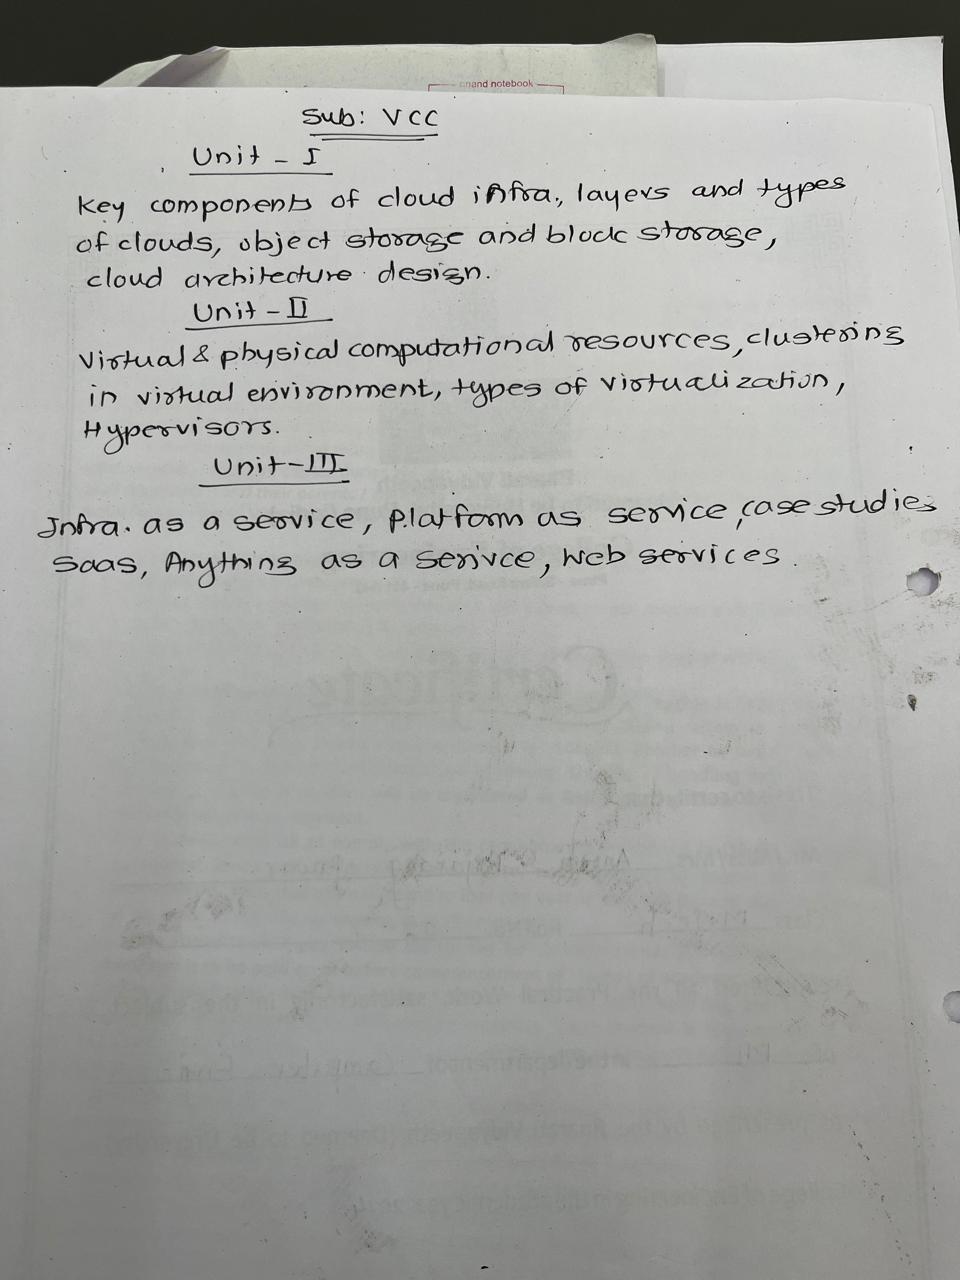 anand notebook
Sub: VCC
Unit - I
Key components of cloud infra., layers and types
of clouds, object storage and block storage,
cloud architecture design.
Unit - II
Virtual & physical computational resources, clustering
in virtual environment, types of virtualization,
Hypervisors.
Unit - III
Infra. as a service, Platform as service, case studies
Saas, Anything as a serivce, Web services.
Certificate